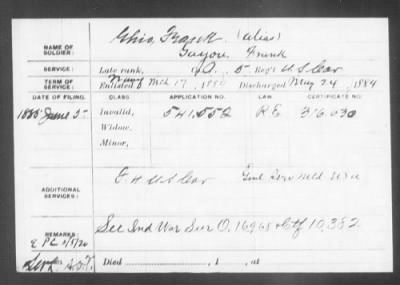 Ohio, Frank (alias)
NAME OF SOLDIER: Guyou Frank
SERVICE: Late rank, Co. A. 5 Reg't U S Cav
TERM OF SERVICE: Enlisted Mch 17, 188 Discharged May 24, 1884
DATE OF FILING. CLASS. APPLICATION NO. LAW. CERTIFICATE NO.
1885 June 5 Invalid, 541.552 316 030
Widow,
Minor,
ADDITIONAL SERVICES: U S Cav
REMARKS: See Ind War Sur O, 16968 Ctf 10,382
Died , 1 , at